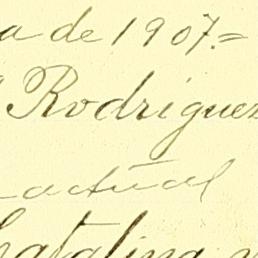 a de 1907.=
Rodriguez
actual
Catalina